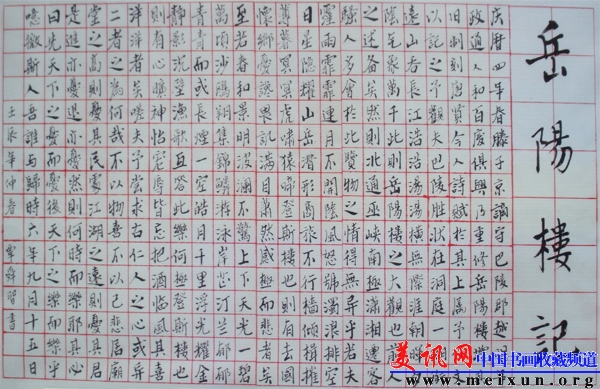 岳陽樓記
庆曆四年春滕子京謫守巴陵郡越明年
政通人和百廢俱興乃重修岳陽樓增其
舊制刻唐賢今人詩賦於其上屬予作文
以記之予觀夫巴陵勝狀在洞庭一湖銜
遠山吞長江浩浩湯湯橫無際涯朝暉夕
陰氣象萬千此則岳陽樓之大觀也前人
之述备矣然則北通巫峽南極瀟湘遷客
騷人多會於此覽物之情得無異乎若夫
霪雨霏霏連月不開陰風怒號濁浪排空
日星隱耀山岳潛形商旅不行檣傾楫摧
薄暮冥冥虎嘯猿啼登斯樓也則有去國
懷鄉憂讒畏譏滿目蕭然感極而悲者矣
至若春和景明波瀾不驚上下天光一碧
萬頃沙鷗翔集錦鱗游泳岸芷汀蘭郁郁
青青而或長煙一空皓月千里浮光耀金
靜影沉璧漁歌互答此樂何極登斯樓也
則有心曠神怡寵辱皆忘把酒臨風其喜
洋洋者矣嗟夫予嘗求古仁人之心或異
二者之為何哉不以物喜不以己悲居廟
堂之高則憂其民處江湖之遠則憂其君
是進亦憂退亦憂然則何時而樂耶其必
曰先天下之憂而憂後天下之樂而樂乎
噫微斯人吾誰與歸時六年九月十五日
壬辰年仲春 習書
美讯網 中国书画收藏频道
www.meixun.org